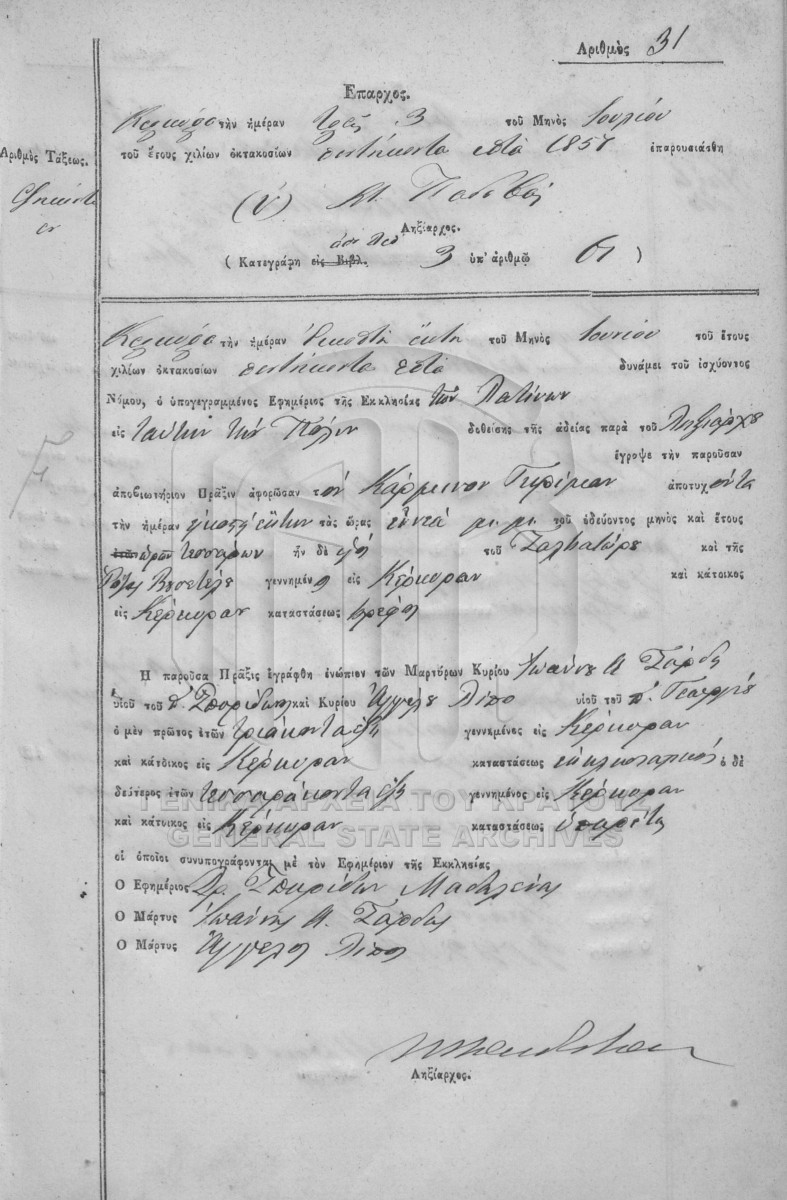 Αριθμὸς 31
Επαρχος.
Κέρκυρα τὴν ἡμέραν τρεῖς 3 τοῦ Μηνὸς Ιουλίου
Αριθμὸς Τάξεως.
τοῦ ἔτους χιλίων ὀκτακοσίων πεντήκοντα επτὰ 1857 ἐπαρουσιάσθη
(Υ)
Ληξίαρχος.
( Κατεγράφη εἰς Βιβλ. 3 ὑπ' ἀριθμῷ 61 )
Κέρκυρα τὴν ἡμέραν εικοστὴ ἕκτη τοῦ Μηνὸς Ιουνίου τοῦ ἔτους
χιλίων ὀκτακοσίων πεντήκοντα επτὰ δυνάμει τοῦ ἰσχύοντος
Νόμου, ὁ ὑπογεγραμμένος Εφημέριος τῆς Εκκλησίας τῶν Λατίνων
εἰς ταύτην τὴν Πόλιν δοθείσης τῆς ἀδείας παρὰ τοῦ Ληξιάρχου
ἔγραψε τὴν παροῦσαν
ἀποβιωτήριον Πρᾶξιν ἀφορῶσαν τὸν Κάρμενον ἀποτυχόντα
τὴν ἡμέραν εικοστὴ ἕκτην τὰς ὥρας εννέα μ. μ. τοῦ ὁδεύοντος μηνὸς καὶ ἔτους
ἐτῶν ὡρῶν τεσσάρων ἦν δὲ υἱὸς τοῦ Σαλβατώρε καὶ τῆς
Ρόζας γεννημένος εἰς Κέρκυραν καὶ κάτοικος
εἰς Κέρκυραν καταστάσεως βρέφος
Η παροῦσα Πρᾶξις ἐγράφθη ἐνώπιον τῶν Μαρτύρων Κυρίου Ιωάννου Α. Σάρδα
υἱοῦ τοῦ Σπυρίδωνος καὶ Κυρίου Αγγέλου Λίπο υἱοῦ τοῦ π. Γεωργίου
ὁ μὲν πρῶτος ἐτῶν τριάκοντα ἓξ γεννημένος εἰς Κέρκυραν
καὶ κάτοικος εἰς Κέρκυραν καταστάσεως εκκλησιαστικὸς ὁ δὲ
δεύτερος ἐτῶν τεσσαράκοντα ἓξ γεννημένος εἰς Κέρκυραν
καὶ κάτοικος εἰς Κέρκυραν καταστάσεως ὑπηρέτης
οἱ ὁποῖοι συνυπογράφονται μὲ τὸν Εφημέριον τῆς Εκκλησίας
Ο Εφημέριος Σπυρίδων
Ο Μάρτυς Ιωάννης Α. Σάρδας
Ο Μάρτυς Άγγελος Λίπος
Ληξίαρχος.
ΓΕΝΙΚΑ ΑΡΧΕΙΑ ΤΟΥ ΚΡΑΤΟΥΣ
GENERAL STATE ARCHIVES